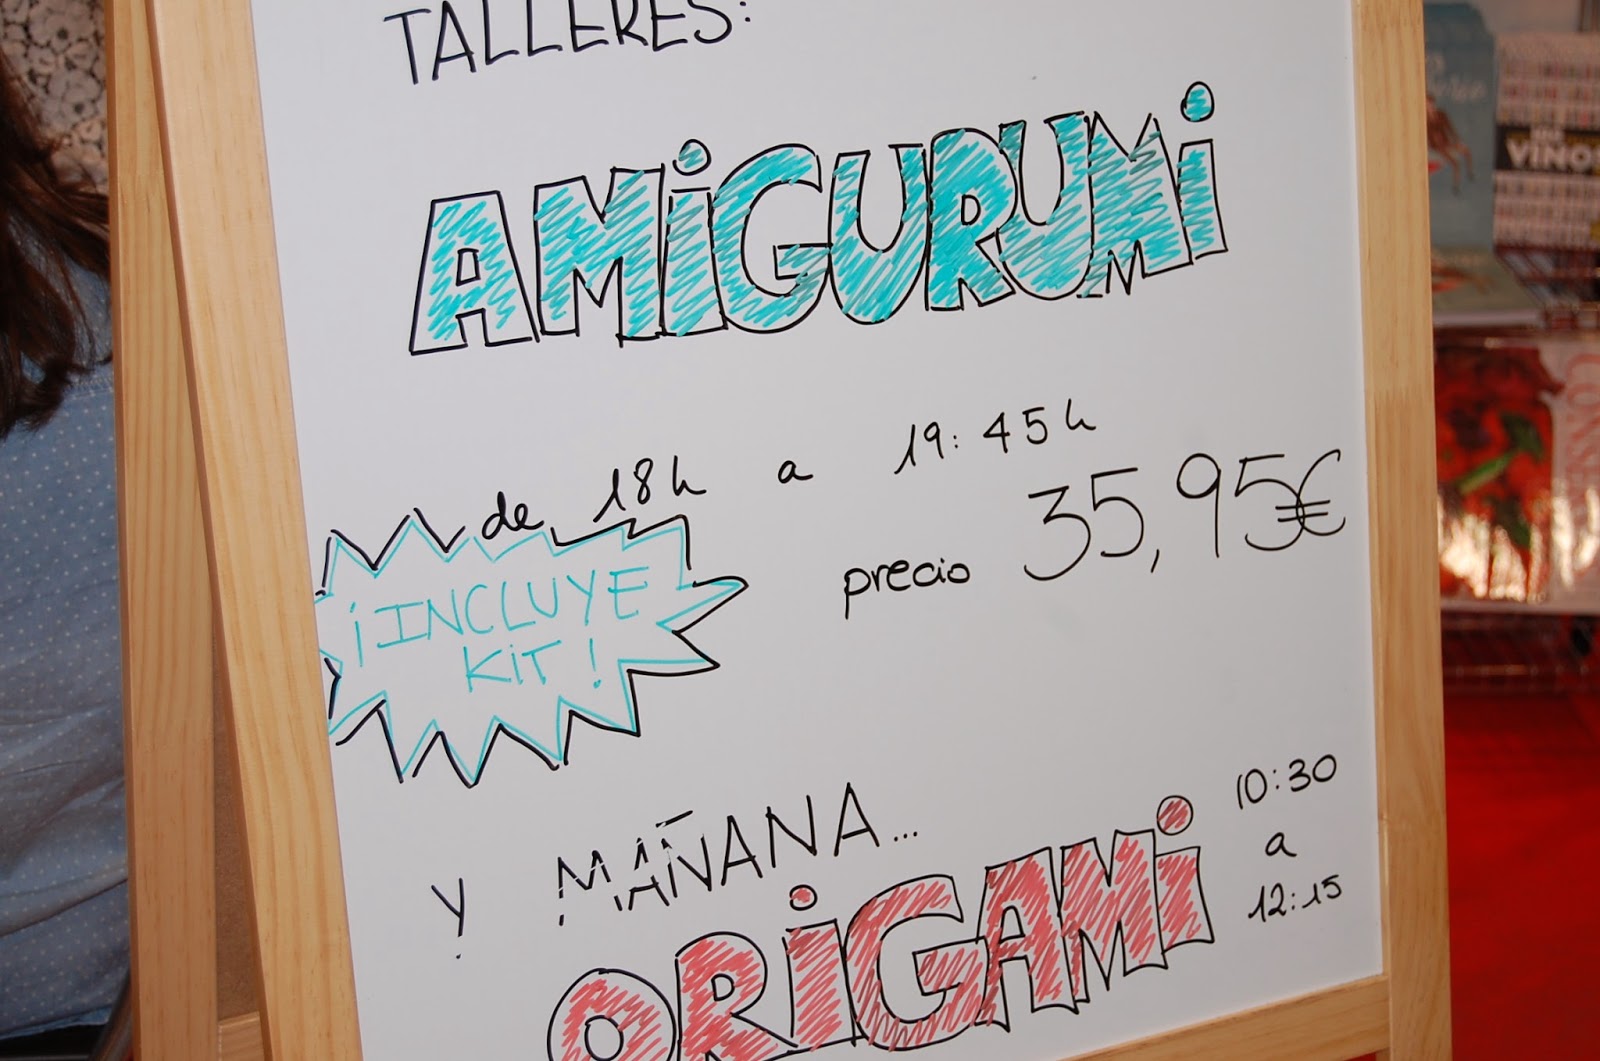 TALLERES:
AMiGURUMi
de 18h a 19:45h
precio 35,95€
¡INCLUYE
KiT!
Y MAÑANA...
ORiGAMi
10:30
a
12:15
VINOS